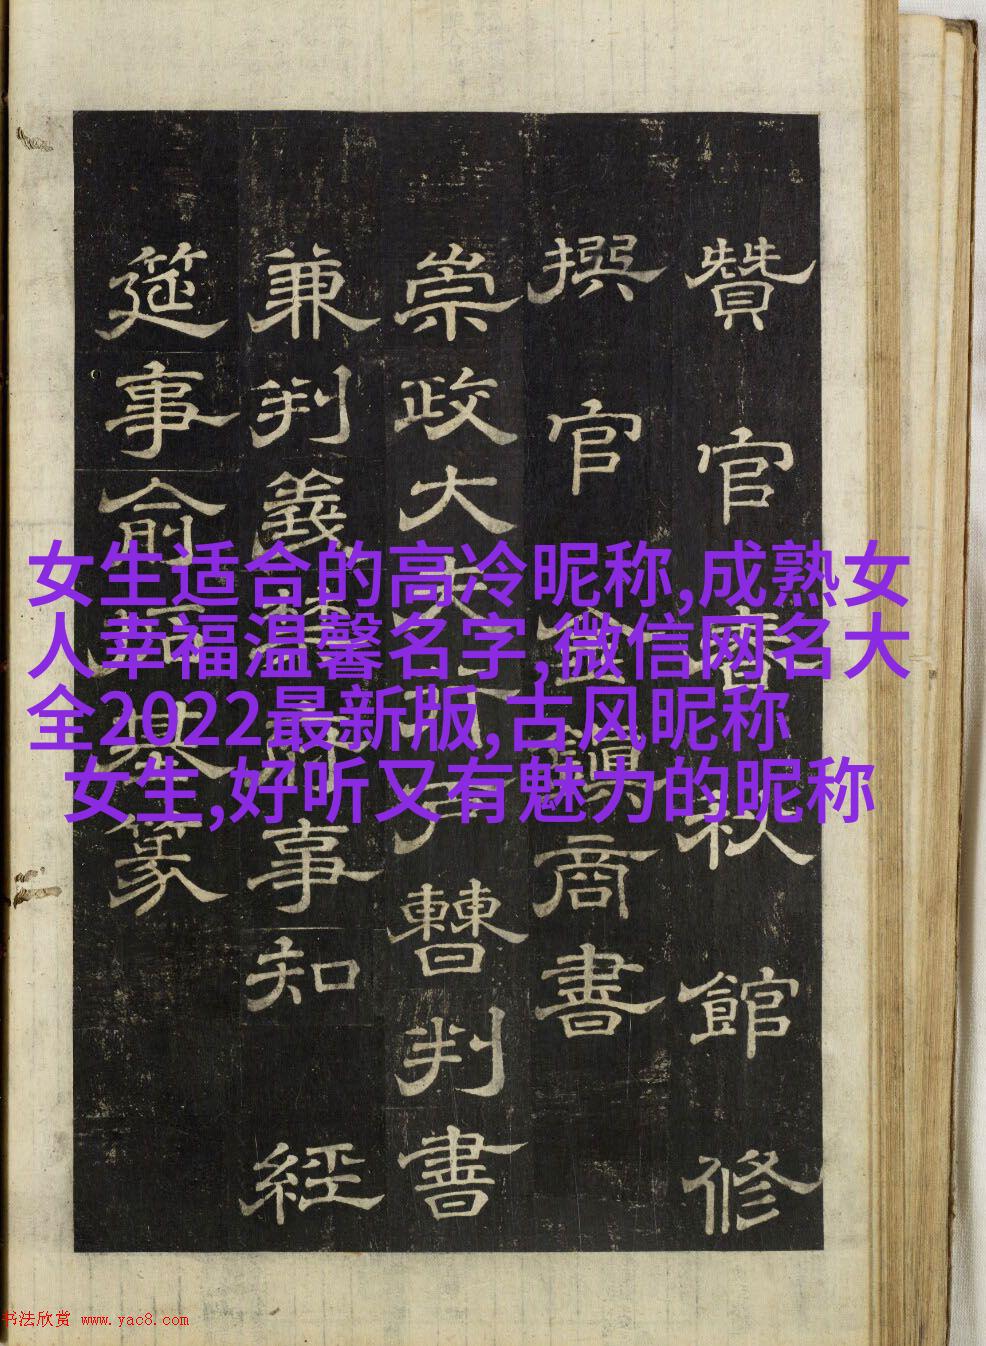 贊官春秋館修
撰官金鎭商書
崇政大夫行戶曹判書
兼判義禁府事知經
筵事俞拓基篆
女生适合的高冷昵称,成熟女
人幸福温馨名字,微信网名大
全2022最新版,古风昵称
女生,好听又有魅力的昵称
书法欣赏 www.yac8.com